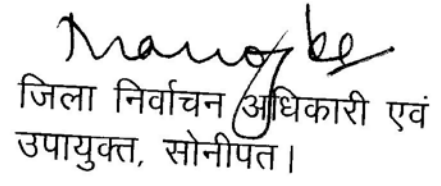 जिला निर्वाचन अधिकारी एवं
उपायुक्त, सोनीपत।